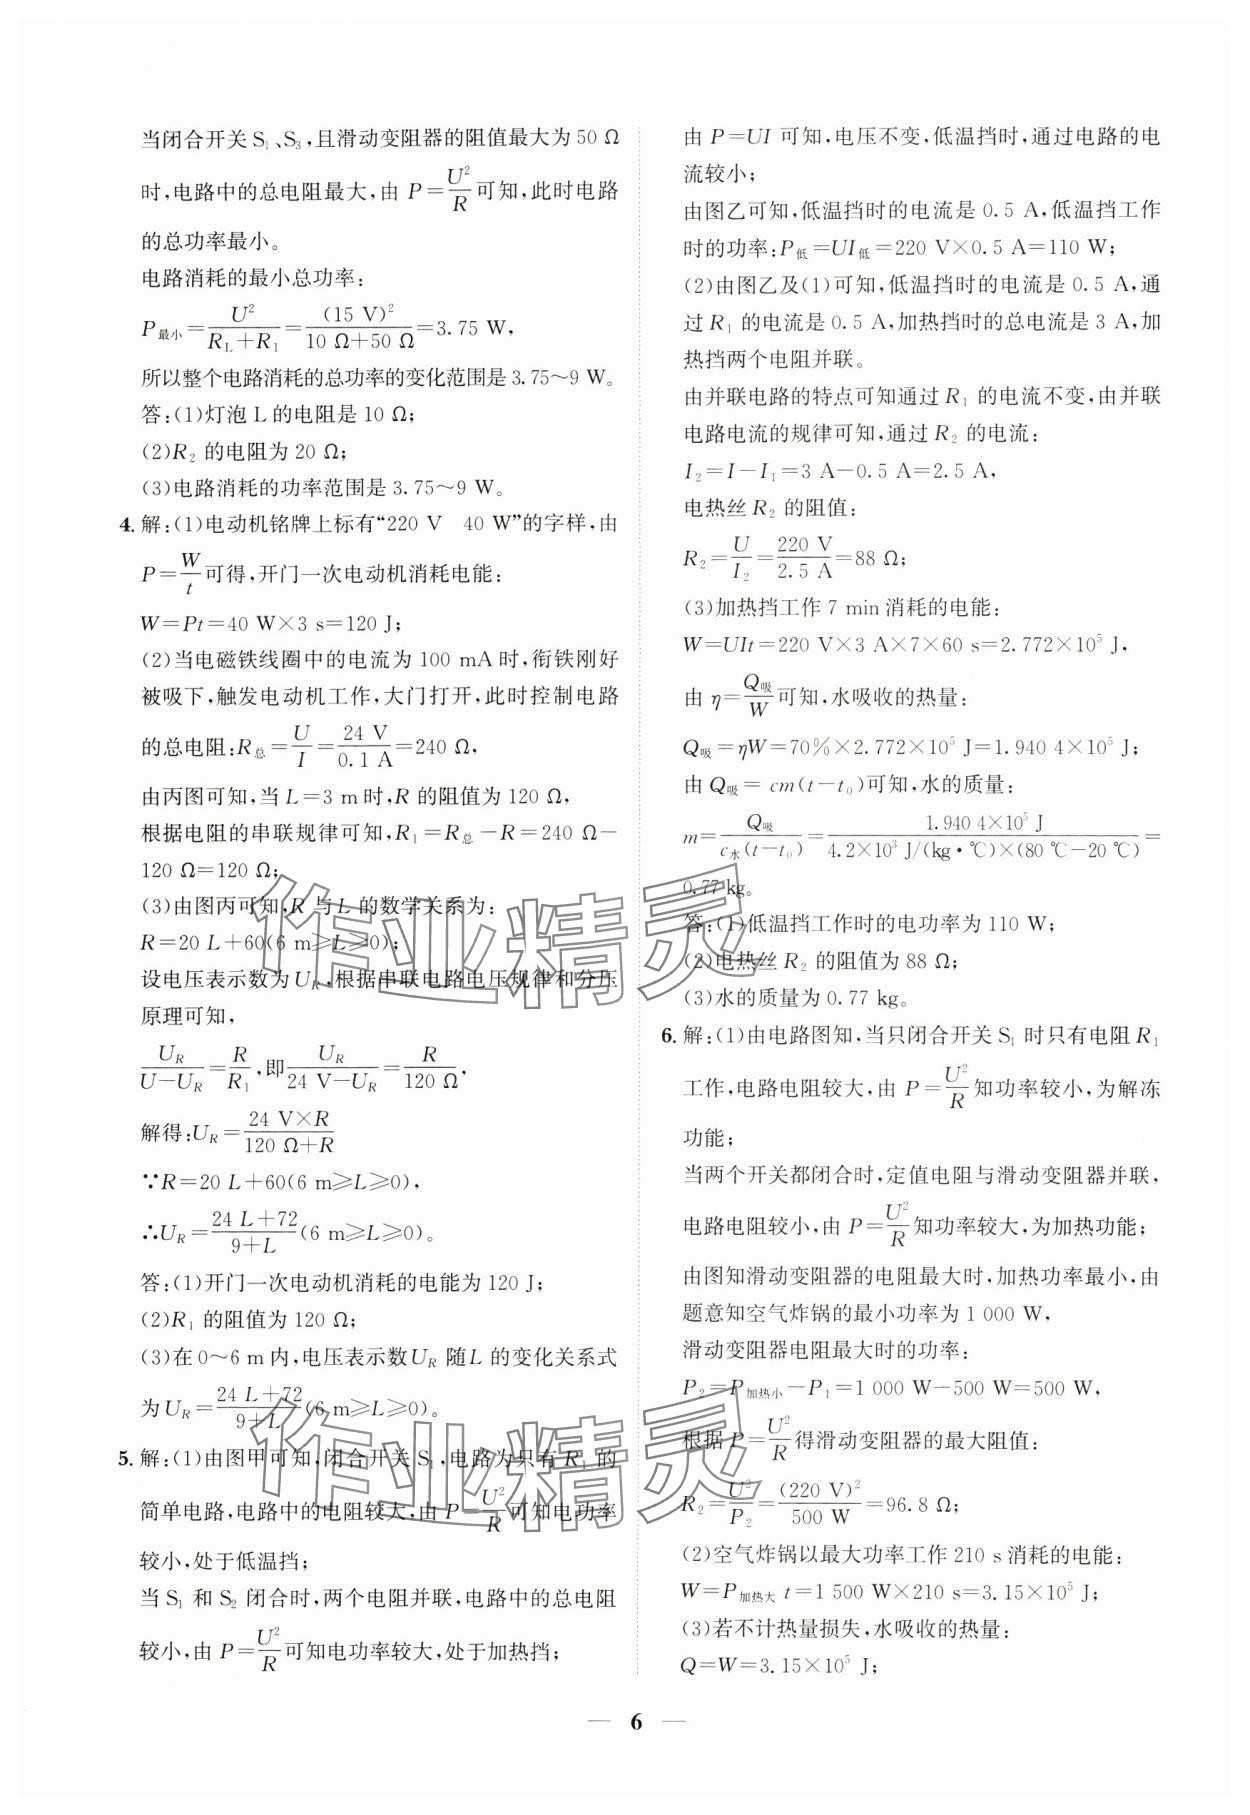 当闭合开关 S₁、S₃,且滑动变阻器的阻值最大为 50 Ω
时,电路中的总电阻最大,由 P=U²/R可知,此时电路
的总功率最小。
电路消耗的最小总功率:
P最小=U²/(R_L+R₁)=(15 V)²/(10 Ω+50 Ω)=3.75 W,
所以整个电路消耗的总功率的变化范围是 3.75~9 W。
答:(1)灯泡 L 的电阻是 10 Ω;
(2)R₂ 的电阻为 20 Ω;
(3)电路消耗的功率范围是 3.75~9 W。
4. 解:(1)电动机铭牌上标有“220 V 40 W”的字样,由
P=W/t可得,开门一次电动机消耗电能:
W=Pt=40 W×3 s=120 J;
(2)当电磁铁线圈中的电流为 100 mA 时,衔铁刚好
被吸下,触发电动机工作,大门打开,此时控制电路
的总电阻:R总=U/I=24 V/0.1 A=240 Ω,
由丙图可知,当 L=3 m 时,R 的阻值为 120 Ω,
根据电阻的串联规律可知,R₁=R总-R=240 Ω-
120 Ω=120 Ω;
(3)由图丙可知,R 与 L 的数学关系为:
R=20 L+60(6 m≥L≥0);
设电压表示数为 U_R,根据串联电路电压规律和分压
原理可知,
U_R/(U-U_R)=R/R₁,即U_R/(24 V-U_R)=R/120 Ω,
解得:U_R=24 V×R/(120 Ω+R)
∵R=20 L+60(6 m≥L≥0),
∴U_R=(24 L+72)/(9+L)(6 m≥L≥0)。
答:(1)开门一次电动机消耗的电能为 120 J;
(2)R₁ 的阻值为 120 Ω;
(3)在 0~6 m 内,电压表示数 U_R 随 L 的变化关系式
为 U_R=(24 L+72)/(9+L)(6 m≥L≥0)。
5. 解:(1)由图甲可知,闭合开关 S₁,电路为只有 R₁ 的
简单电路,电路中的电阻较大,由 P=U²/R可知电功率
较小,处于低温挡;
当 S₁ 和 S₂ 闭合时,两个电阻并联,电路中的总电阻
较小,由 P=U²/R可知电功率较大,处于加热挡;
由 P=UI 可知,电压不变,低温挡时,通过电路的电
流较小;
由图乙可知,低温挡时的电流是 0.5 A,低温挡工作
时的功率:P低=UI低=220 V×0.5 A=110 W;
(2)由图乙及(1)可知,低温挡时的电流是 0.5 A,通
过 R₁ 的电流是 0.5 A,加热挡时的总电流是 3 A,加
热挡两个电阻并联。
由并联电路的特点可知通过 R₁ 的电流不变,由并联
电路电流的规律可知,通过 R₂ 的电流:
I₂=I-I₁=3 A-0.5 A=2.5 A,
电热丝 R₂ 的阻值:
R₂=U/I₂=220 V/2.5 A=88 Ω;
(3)加热挡工作 7 min 消耗的电能:
W=UIt=220 V×3 A×7×60 s=2.772×10⁵ J,
由 η=Q吸/W可知,水吸收的热量:
Q吸=ηW=70%×2.772×10⁵ J=1.940 4×10⁵ J;
由 Q吸= cm(t-t₀)可知,水的质量:
m=Q吸/c水(t-t₀)=1.940 4×10⁵ J/4.2×10³ J/(kg·℃)×(80 ℃-20 ℃)=
0.77 kg。
答:(1)低温挡工作时的电功率为 110 W;
(2)电热丝 R₂ 的阻值为 88 Ω;
(3)水的质量为 0.77 kg。
6. 解:(1)由电路图知,当只闭合开关 S₁ 时只有电阻 R₁
工作,电路电阻较大,由 P=U²/R知功率较小,为解冻
功能;
当两个开关都闭合时,定值电阻与滑动变阻器并联,
电路电阻较小,由 P=U²/R知功率较大,为加热功能;
由图知滑动变阻器的电阻最大时,加热功率最小,由
题意知空气炸锅的最小功率为 1 000 W,
滑动变阻器电阻最大时的功率:
P₂=P加热小-P₁=1 000 W-500 W=500 W,
根据 P=U²/R得滑动变阻器的最大阻值:
R₂=U²/P₂=(220 V)²/500 W=96.8 Ω;
(2)空气炸锅以最大功率工作 210 s 消耗的电能:
W=P加热大 t=1 500 W×210 s=3.15×10⁵ J;
(3)若不计热量损失,水吸收的热量:
Q=W=3.15×10⁵ J;
— 6 —
作业精灵
作业精灵